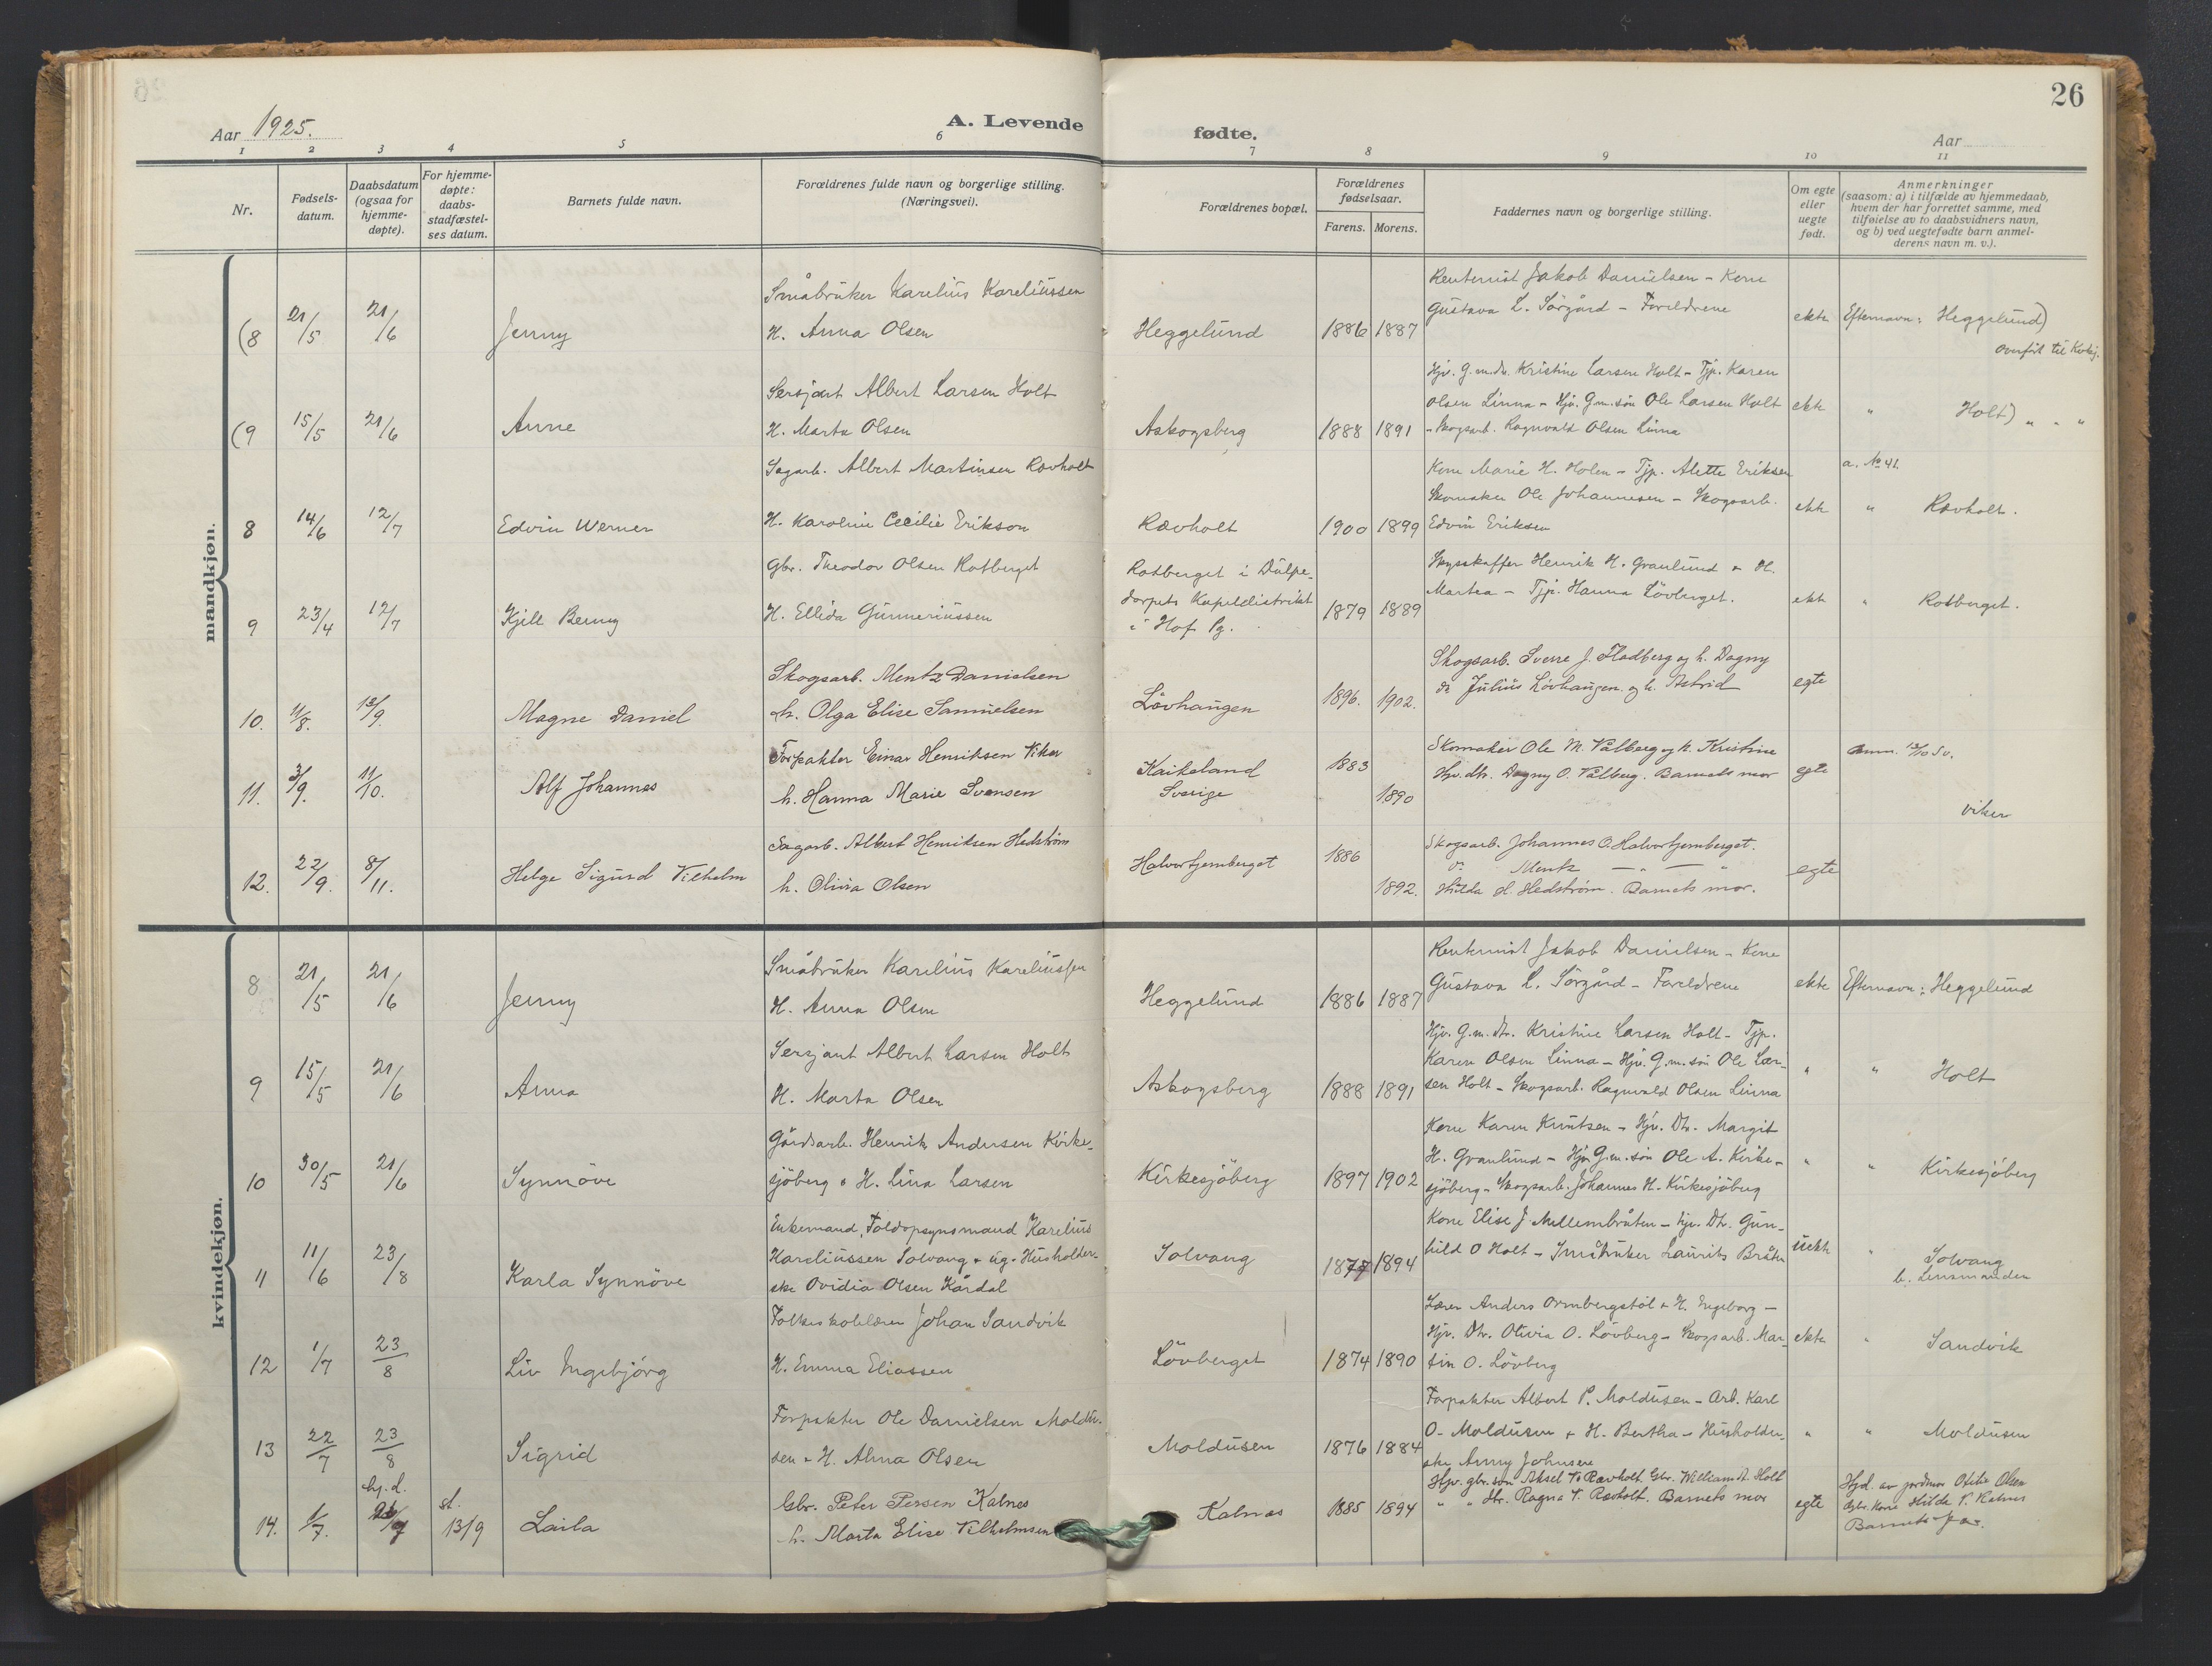 26
Aar 1925.
A. Levende
fødte.
Aar
1 2 3 4 5 6 7 8 9 10 11
Nr.
Fødsels-
datum.
Daabsdatum
(ogsaa for
hjemme-
døpte).
For hjemme-
døpte:
daabs-
stadfæstel-
ses datum.
Barnets fulde navn.
Forældrenes fulde navn og borgerlige stilling.
(Næringsvei).
Forældrenes bopæl.
Forældrenes
fødselsaar.
Farens. Morens.
Faddernes navn og borgerlige stilling.
Om egte
eller
uegte
født.
Anmerkninger
(saasom: a) i tilfælde av hjemmedaab,
hvem der har forrettet samme, med
tilføielse av to daabsvidners navn,
og b) ved uegtefødte barn anmel-
derens navn m. v.).
mandkjøn.
(8 21/5 21/6 Jenny
Småbruker Karelius Kareliussen
H. Anna Olsen
Heggelund 1886 1887
Rentenist Jakob Danielsen - Kone
Gustava L. Sörgård - Foreldrene
ekte Efternavn: Heggelund)
overført til Kvkj.
(9 15/5 21/6 Anne
Sersjant Albert Larsen Holt
H. Marta Olsen
Askogsberg 1888 1891
Hjv. G.m.dr. Kristine Larsen Holt - Tjp. Karen
Olsen Linna - Hjv. G.m.sön Ole Larsen Holt
- Skogsarb. Ragnvald Olsen Linna
ekte " Holt) " " "
8 14/6 12/7 Edvin Werner
Sagarb. Albert Martinsen Rævholt
H. Karoline Cecilie Erikson
Rævholt 1900 1899
Kone Marie H. Holen - Tjp. Alette Eriksen
Skomaker Ole Johannesen - Skogsarb.
Edvin Eriksen
ekte
a. No 41.
" Rævholt.
9 23/4 12/7 Kjell Benny
Gbr. Theodor Olsen Rotberget
H. Ellida Gunneriussen
Rotberget i Dulpe-
torpets Kapeldistrikt
i Hof Pg.
1879 1889
Skysskaffer Henrik H. Granlund & H.
Martea - Tjp. Hanna Lövberget.
ekte " Rotberget.
10. 11/8. 13/9. Magne Daniel
Skogsarb. Mentz Danielsen
h. Olga Elise Samuelsen
Lövhaugen 1896. 1902.
Skogsarb. Sverre J. Fladberg og h. Dagny
do Julius Lövhaugen og h. Astrid
egte
11. 3/9. 11/10. Alf Johannes
Forpakter Einar Henriksen Viker
h. Hanna Marie Svensen
Kaikeland
Sverige
1883 1890
Skomaker Ole M. Valberg og h. Kristine
Hjv. dtr. Dagny O. Valberg. Barnets mor
egte
anm. 13/10 Sv.
Viker
12. 22/9. 8/11. Helge Sigurd Vilhelm
Sagarb. Albert Henriksen Hedström
h. Olivia Olsen
Halvortjernberget 1886 1892.
Skogsarb. Johannes O. Halvortjernberget.
Do. Mentz — " — "
Hilda H. Hedström. Barnets mor.
egte
kvindekjøn.
8 21/5 21/6 Jenny
Småbruker Karelius Kareliussen
H. Anna Olsen
Heggelund 1886 1887
Rentenist Jakob Danielsen - Kone
Gustava L. Sörgård - Foreldrene
ekte Efternavn: Heggelund
9 15/5 21/6 Anna
Sersjant Albert Larsen Holt
H. Marta Olsen
Askogsberg 1888 1891
Hjv. G.m.dtr. Kristine Larsen Holt - Tjp.
Karen Olsen Linna - Hjv. G.m.sön Ole Lar-
sen Holt - Skogsarb. Ragnvald Olsen Linna
" " Holt
10 30/5 21/6 Synnöve
Gårdsarb. Henrik Andersen Kirke-
sjöberg & H. Lina Larsen
Kirkesjöberg 1897 1902
Kone Karen Knutsen - Hjv. Dtr. Margit
H. Granlund - Hjv. G.m.sön Ole A. Kirke-
sjöberg - Skogsarb. Johannes H. Kirkesjöberg
" " Kirkesjöberg
11 11/6 23/8 Karla Synnöve
Enkemand, Toldopsynsmand Karelius
Kareliussen Solvang & ug. Husholder-
ske Ovidia Olsen Kårdal
Solvang 1877 1894
Kone Elise J. Mellembråten - Hjv. Dtr. Gun-
hild O Holt - Småbruker Laurits Bråten
uekte " Solvang
b. Lensmanden
12 1/7 23/8 Liv Ingebjörg
Folkeskolelærer Johan Sandvik
H. Emma Eliassen
Lövberget 1874 1890
Lærer Anders Ormbergstöl & H. Ingeborg -
Hjv. Dtr. Olivia O. Lövberg - Skogsarb. Mar-
tin O. Lövberg
ekte " Sandvik
13 22/7 23/8 Sigrid
Forpakter Ole Danielsen Moldu-
sen & H. Alma Olsen
Moldusen 1876 1884
Forpakter Albert P. Moldusen - Arb. Karl
O. Moldusen & H. Bertha - Husholder-
ske Anny Johnsen
" " Moldusen
14. 1/7. hj.d. st. 13/9 Laila
Gbr. Peter Persen Kalnes
h. Marta Elise Vilhelmsen
Kalnes 1885 1894
Hjv. gbr. sön Aksel T. Rævholt. Gbr. William A. Holt
" " dtr. Ragna T. Rævholt. Barnets mor
egte
Hjd. av jordmor Otilie Olsen
Gbr. kone Hilda P. Kalnes
Barnets far.